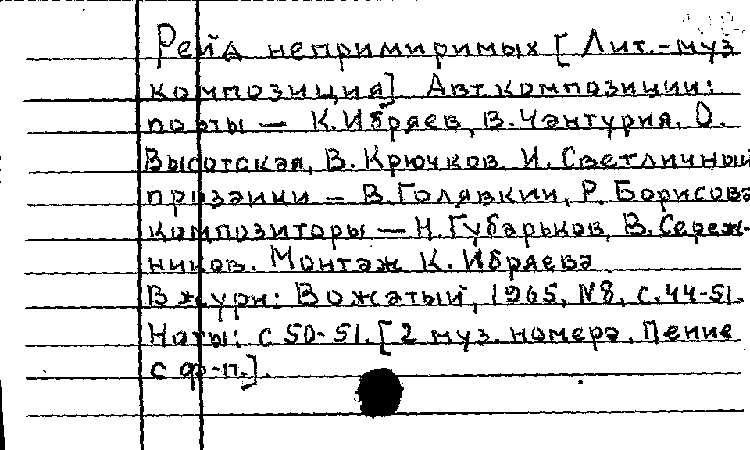 Рейд непримиримых [Лит.-муз
композиция]. Авт композиции:
поэты — К. Ибряев, В. Чантурия, О.
Высотская, В. Крючков И. Светличный
прозаики — В. Голявкин, Р. Борисова
композиторы — Н. Губарьков, В. Сереж-
ников. Монтаж К. Ибряева
В журн: Вожатый, 1965, N8, с. 44-51.
Ноты: с 50-51. [2 муз. номера. Пение
с ф-п.].